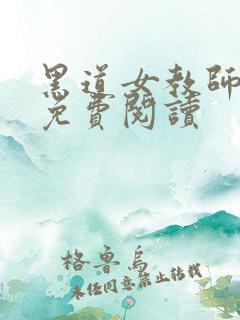 黑道女教師
免費閱讀
格魯烏
未經同意禁止轉載